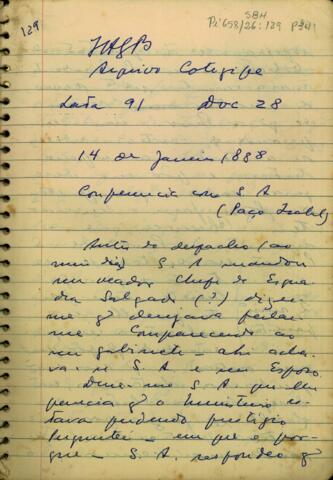 129
SBH
Pi 658/26:129 P241
IHGB
Arquivo Cotegipe
Lata 91 Doc 28
14 de Janeiro 1888
Conferencia com S A
(Paço Isabel)
Antes do despacho (ao
meio dia) S. A mandou
seu veador Chefe de Esqua
dra Salgado (?) dizer
me q desejava fallar
me Comparecendo ao
seu gabinete – ahi acha
va-se S. A e seu Esposo
Disse-me S. A que lhe
parecia q o Ministerio es
tava perdendo prestigio
Perguntei – em que e por
que – S. A. respondeo q